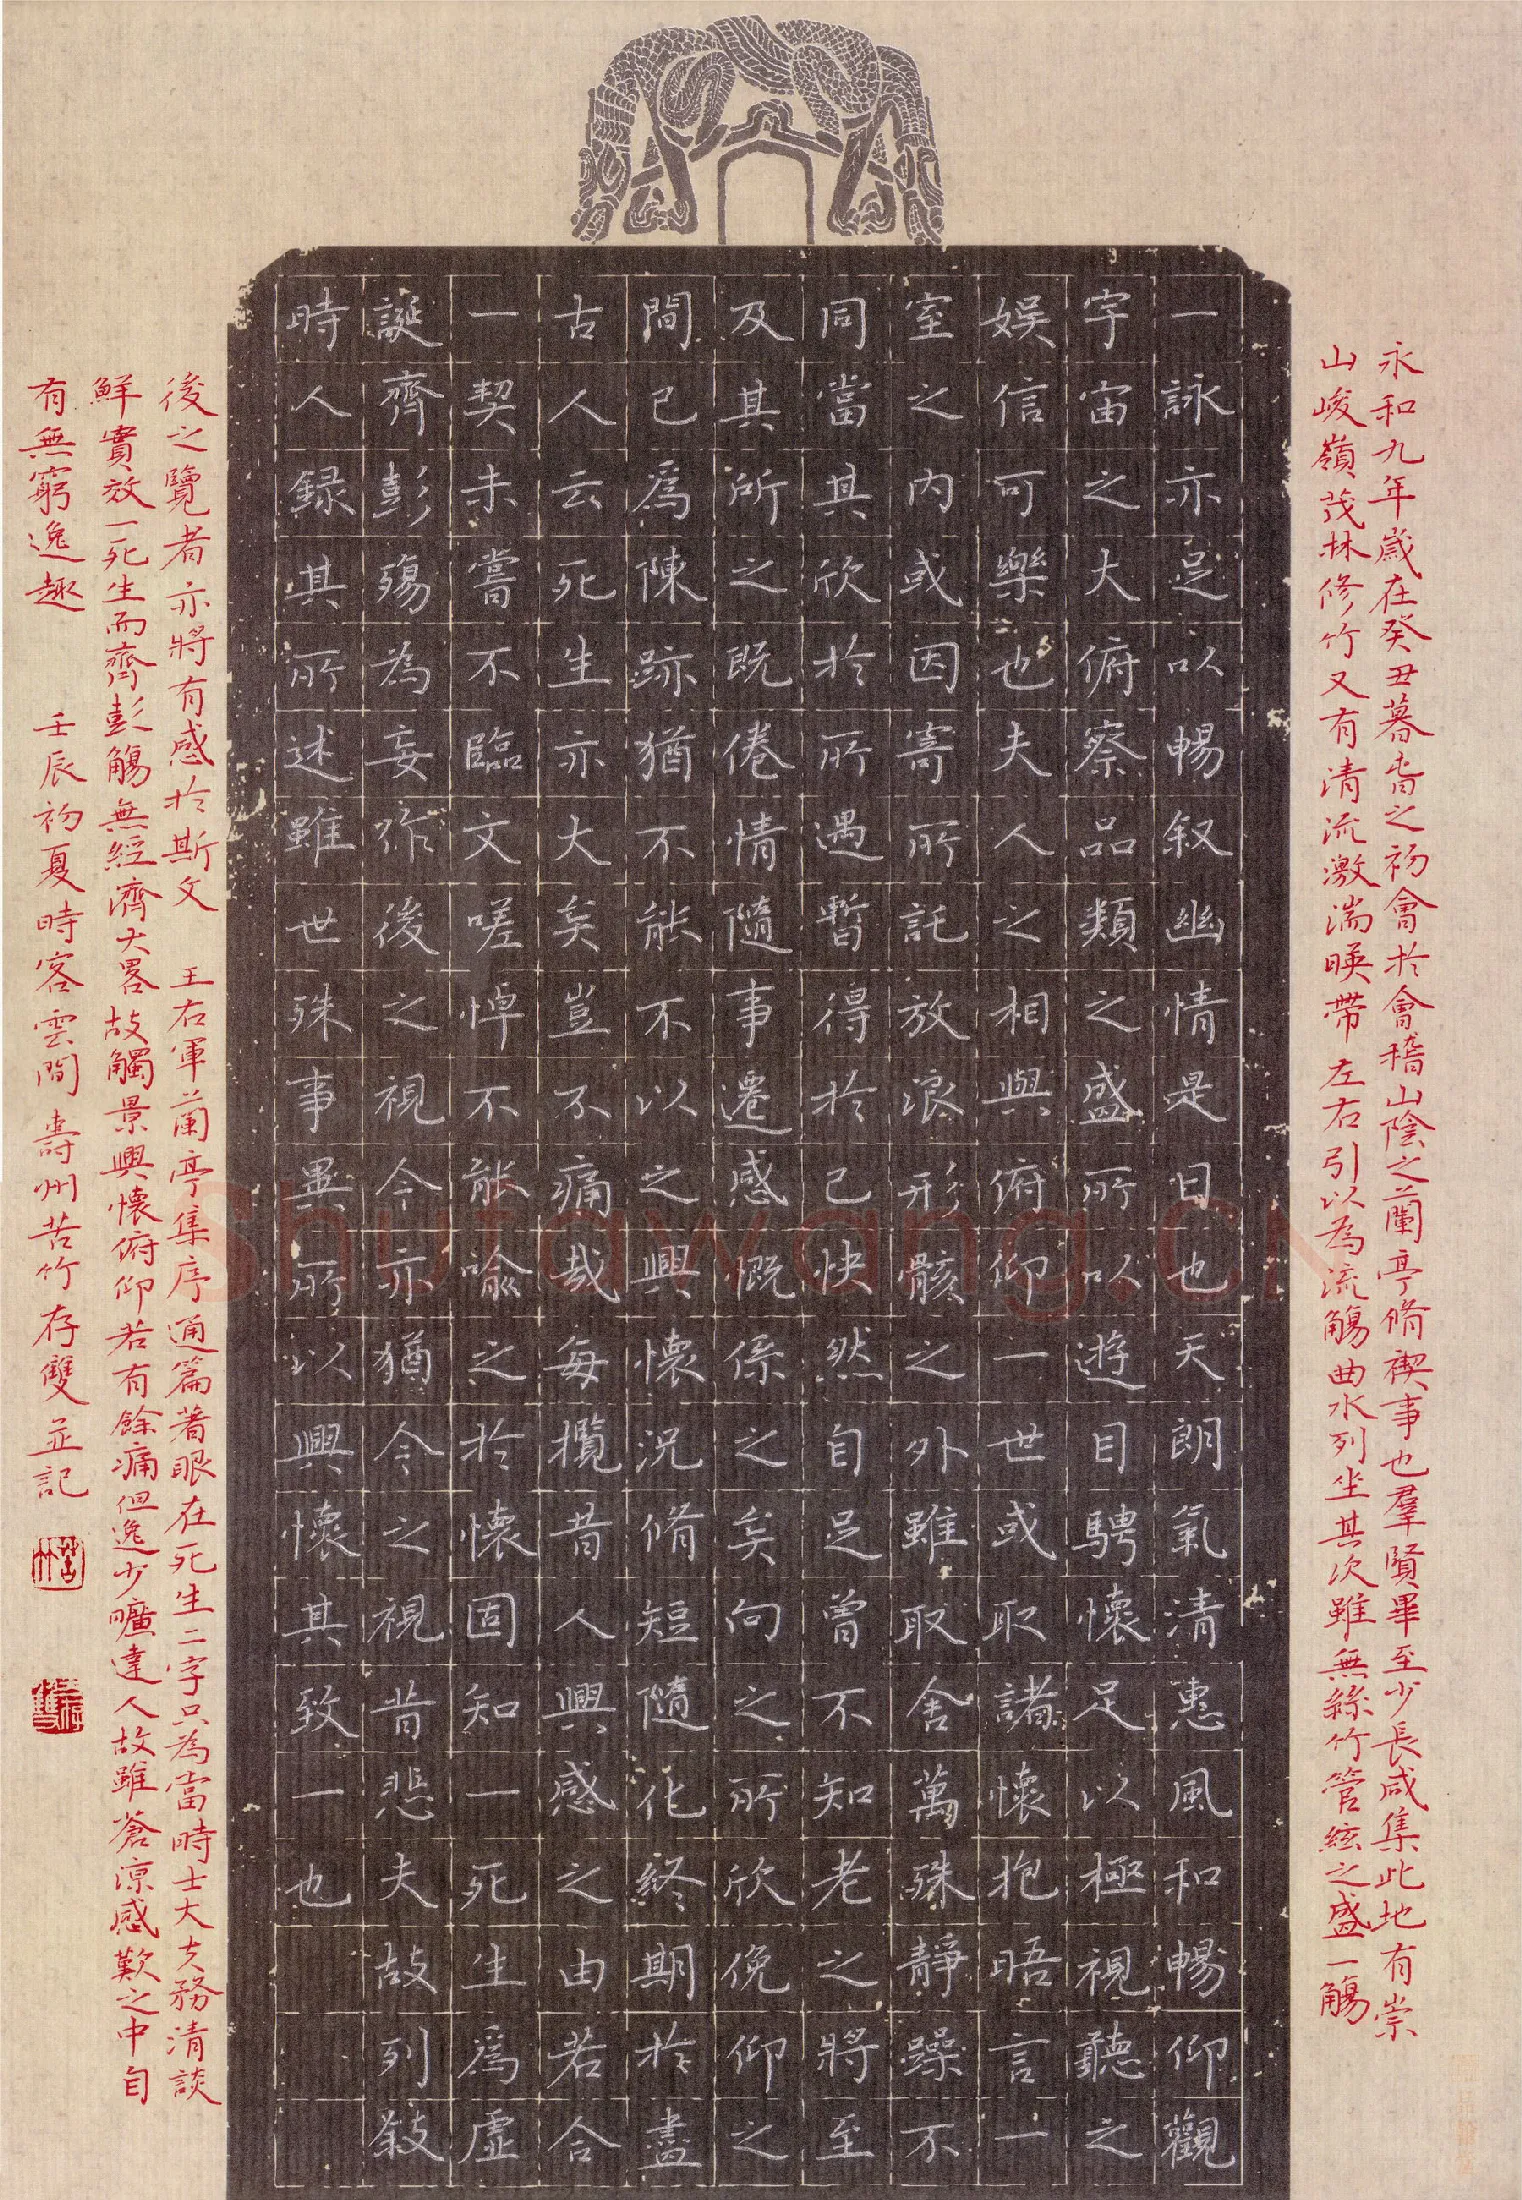 永和九年歲在癸丑暮春之初會於會稽山陰之蘭亭脩禊事也羣賢畢至少長咸集此地有崇
山峻嶺茂林修竹又有清流激湍暎帶左右引以為流觴曲水列坐其次雖無絲竹管絃之盛一觴
一詠亦足以暢叙幽情是日也天朗氣清惠風和暢仰觀
宇宙之大俯察品類之盛所以遊目騁懷足以極視聽之
娛信可樂也夫人之相與俯仰一世或取諸懷抱晤言一
室之內或因寄所託放浪形骸之外雖取舍萬殊靜躁不
同當其欣於所遇暫得於己快然自足曾不知老之將至
及其所之既倦情隨事遷感慨係之矣向之所欣俛仰之
間已為陳跡猶不能不以之興懷況脩短隨化終期於盡
古人云死生亦大矣豈不痛哉每攬昔人興感之由若合
一契未嘗不臨文嗟悼不能喻之於懷固知一死生為虛
誕齊彭殤為妄作後之視今亦猶今之視昔悲夫故列敍
時人録其所述雖世殊事異所以興懷其致一也
後之覽者亦將有感於斯文 王右軍蘭亭集序通篇著眼在死生二字只為當時士大夫務清談
鮮實效一死生而齊彭殤無經濟大畧故觸景興懷俯仰若有餘痛但逸少曠達人故雖蒼涼感歎之中自
有無窮逸趣 壬辰初夏時客雲間壽州苦竹存雙並記
苦竹
存雙
Shufawang.CN